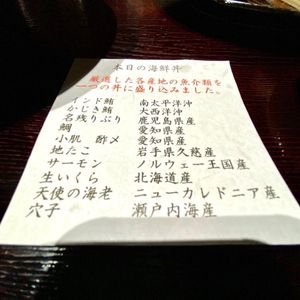 本日の海鮮丼
厳選した各産地の魚介類を
一つの丼に盛り込みました。
インド鮪 南太平洋沖
かじき鮪 大西洋沖
名残りぶり 鹿児島県産
鯛 愛知県産
小肌 酢〆 愛知県産
地たこ 岩手県久慈産
サーモン ノルウェー王国産
生いくら 北海道産
天使の海老 ニューカレドニア産
穴子 瀬戸内海産